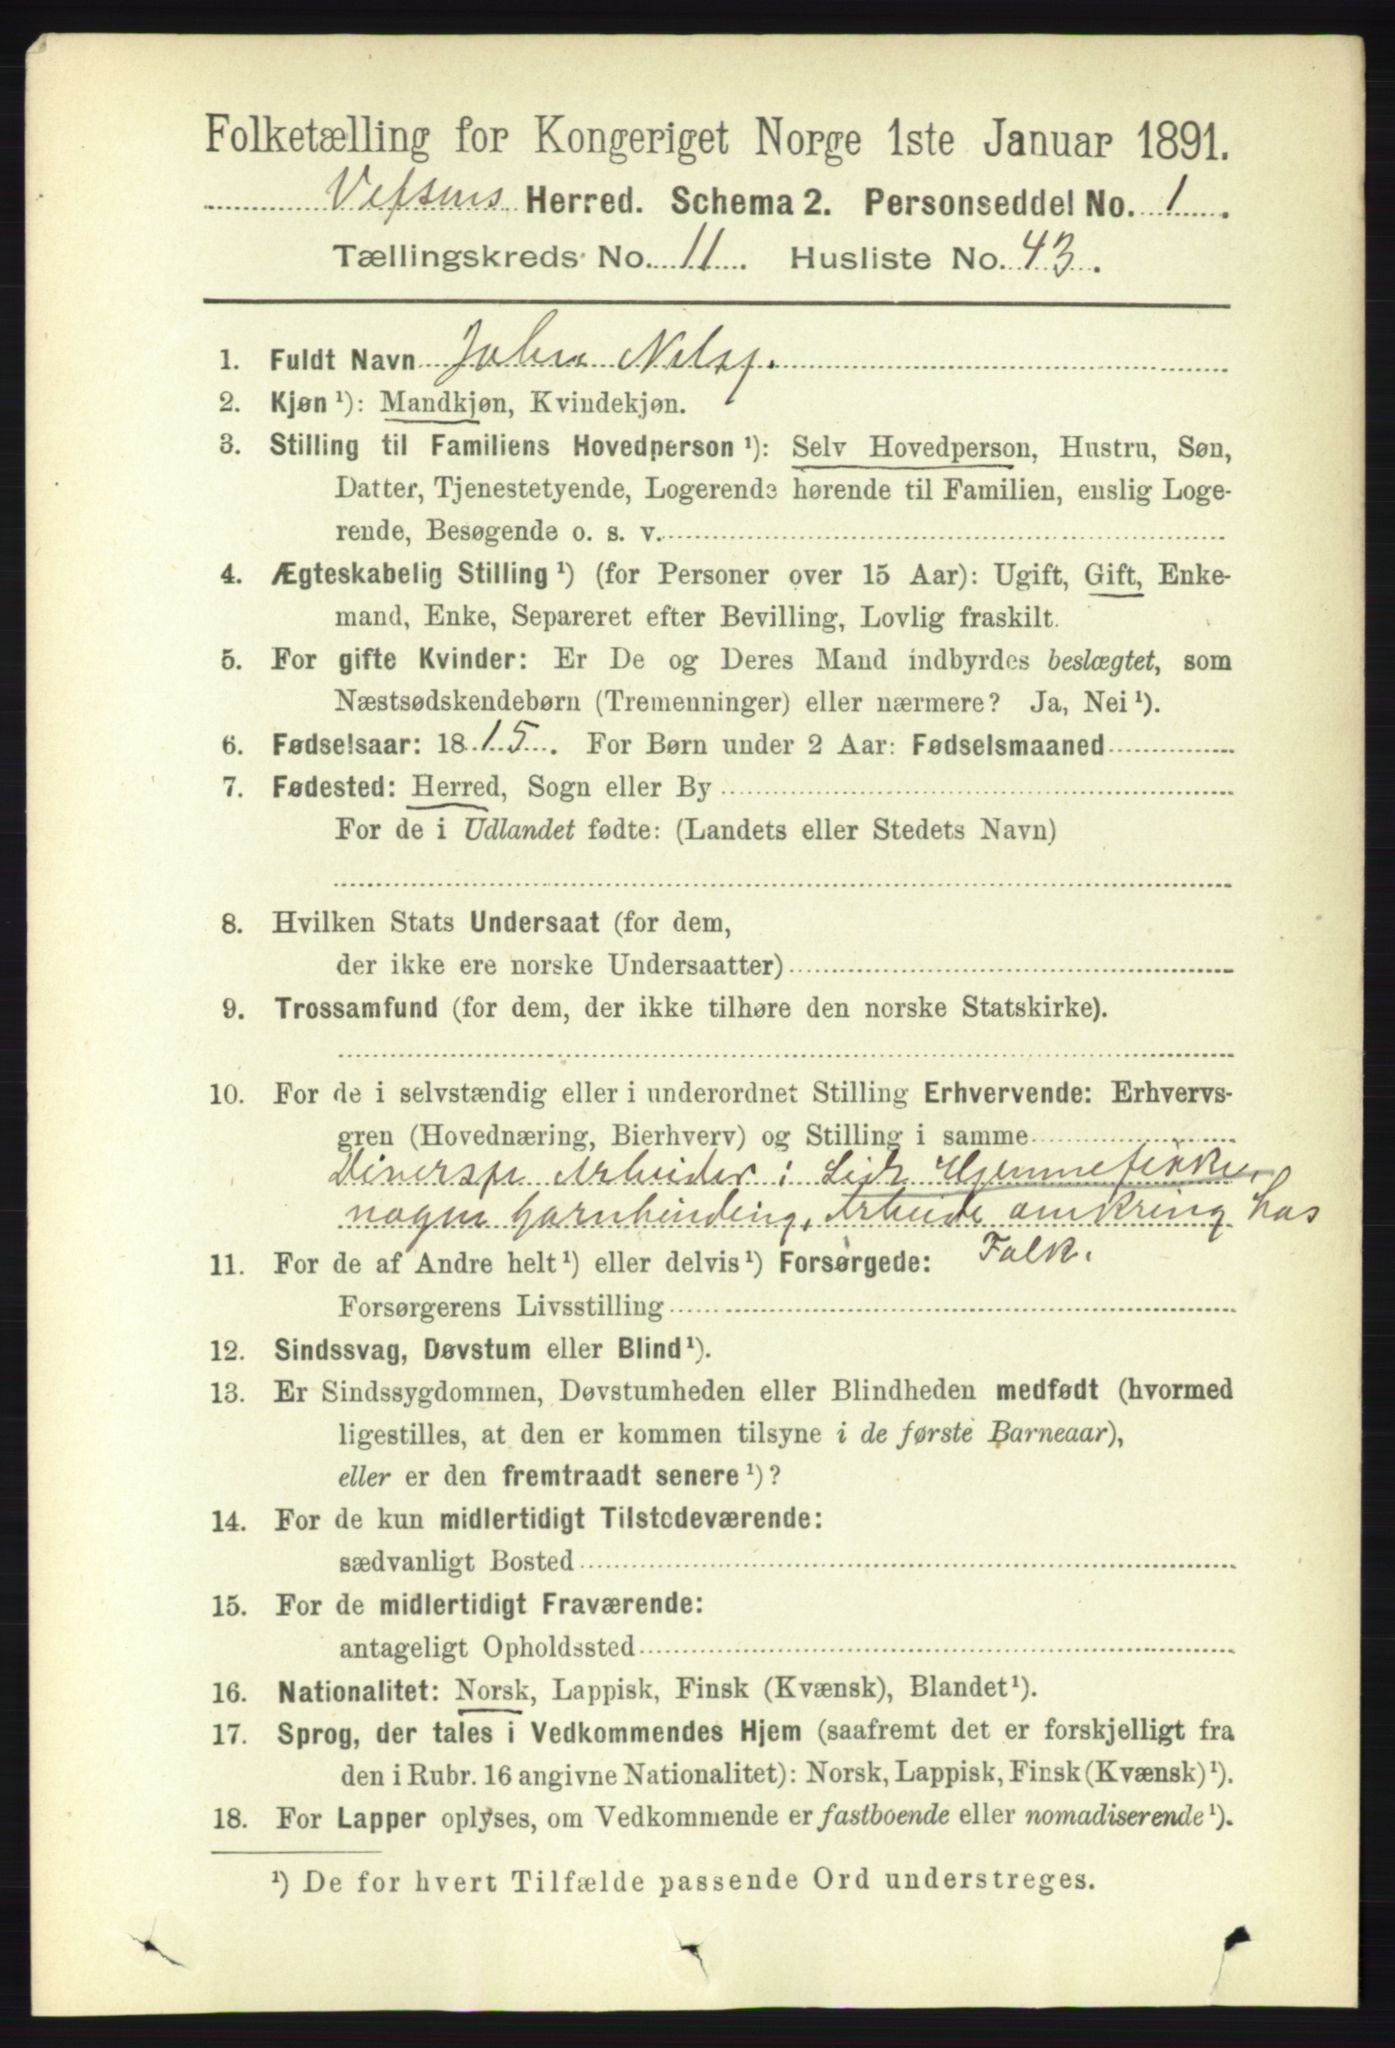 Folketælling for Kongeriget Norge 1ste Januar 1891.
Vefsens Herred. Schema 2. Personseddel No. 1.
Tællingskreds No. 11. Husliste No. 43.
1. Fuldt Navn John Nils
2. Kjøn ¹): Mandkjøn, Kvindekjøn.
3. Stilling til Familiens Hovedperson ¹): Selv Hovedperson, Hustru, Søn,
Datter, Tjenestetyende, Logerende hørende til Familien, enslig Loge-
rende, Besøgende o. s. v.
4. Ægteskabelig Stilling ¹) (for Personer over 15 Aar): Ugift, Gift, Enke-
mand, Enke, Separeret efter Bevilling, Lovlig fraskilt.
5. For gifte Kvinder: Er De og Deres Mand indbyrdes beslægtet, som
Næstsødskendebørn (Tremenninger) eller nærmere? Ja, Nei ¹).
6. Fødselsaar: 1815. For Børn under 2 Aar: Fødselsmaaned
7. Fødested: Herred, Sogn eller By
For de i Udlandet fødte: (Landets eller Stedets Navn)
8. Hvilken Stats Undersaat (for dem,
der ikke ere norske Undersaatter)
9. Trossamfund (for dem, der ikke tilhøre den norske Statskirke).
10. For de i selvstændig eller i underordnet Stilling Erhvervende: Erhvervs-
gren (Hovednæring, Bierhverv) og Stilling i samme
Arbeider i Hjemmefiske,
nogen Garnbinding, Arbeide omkring hos
Folk.
11. For de af Andre helt ¹) eller delvis ¹) Forsørgede:
Forsørgerens Livsstilling
12. Sindssvag, Døvstum eller Blind ¹).
13. Er Sindssygdommen, Døvstumheden eller Blindheden medfødt (hvormed
ligestilles, at den er kommen tilsyne i de første Barneaar),
eller er den fremtraadt senere ¹)?
14. For de kun midlertidigt Tilstedeværende:
sædvanligt Bosted
15. For de midlertidigt Fraværende:
antageligt Opholdssted
16. Nationalitet: Norsk, Lappisk, Finsk (Kvænsk), Blandet ¹).
17. Sprog, der tales i Vedkommendes Hjem (saafremt det er forskjelligt fra
den i Rubr. 16 angivne Nationalitet): Norsk, Lappisk, Finsk (Kvænsk) ¹).
18. For Lapper oplyses, om Vedkommende er fastboende eller nomadiserende ¹).
¹) De for hvert Tilfælde passende Ord understreges.